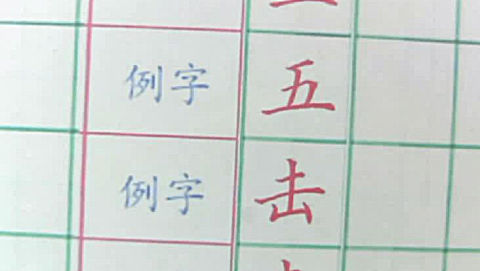 例字 五
例字 击